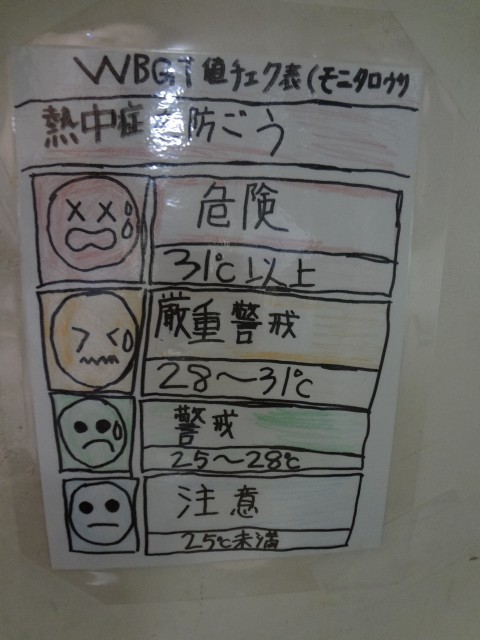 WBGT値チェク表(モニタロウサ
熱中症を防ごう
危険
31℃以上
厳重警戒
28～31℃
警戒
25～28℃
注意
25℃未満